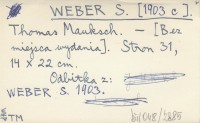 WEBER S. [1903 c].
Thomas Mauksch. – [Bez
miejsca wydania]. Stron 31,
14 x 22 cm.
Odbitka z:
WEBER S. 1903.
TM